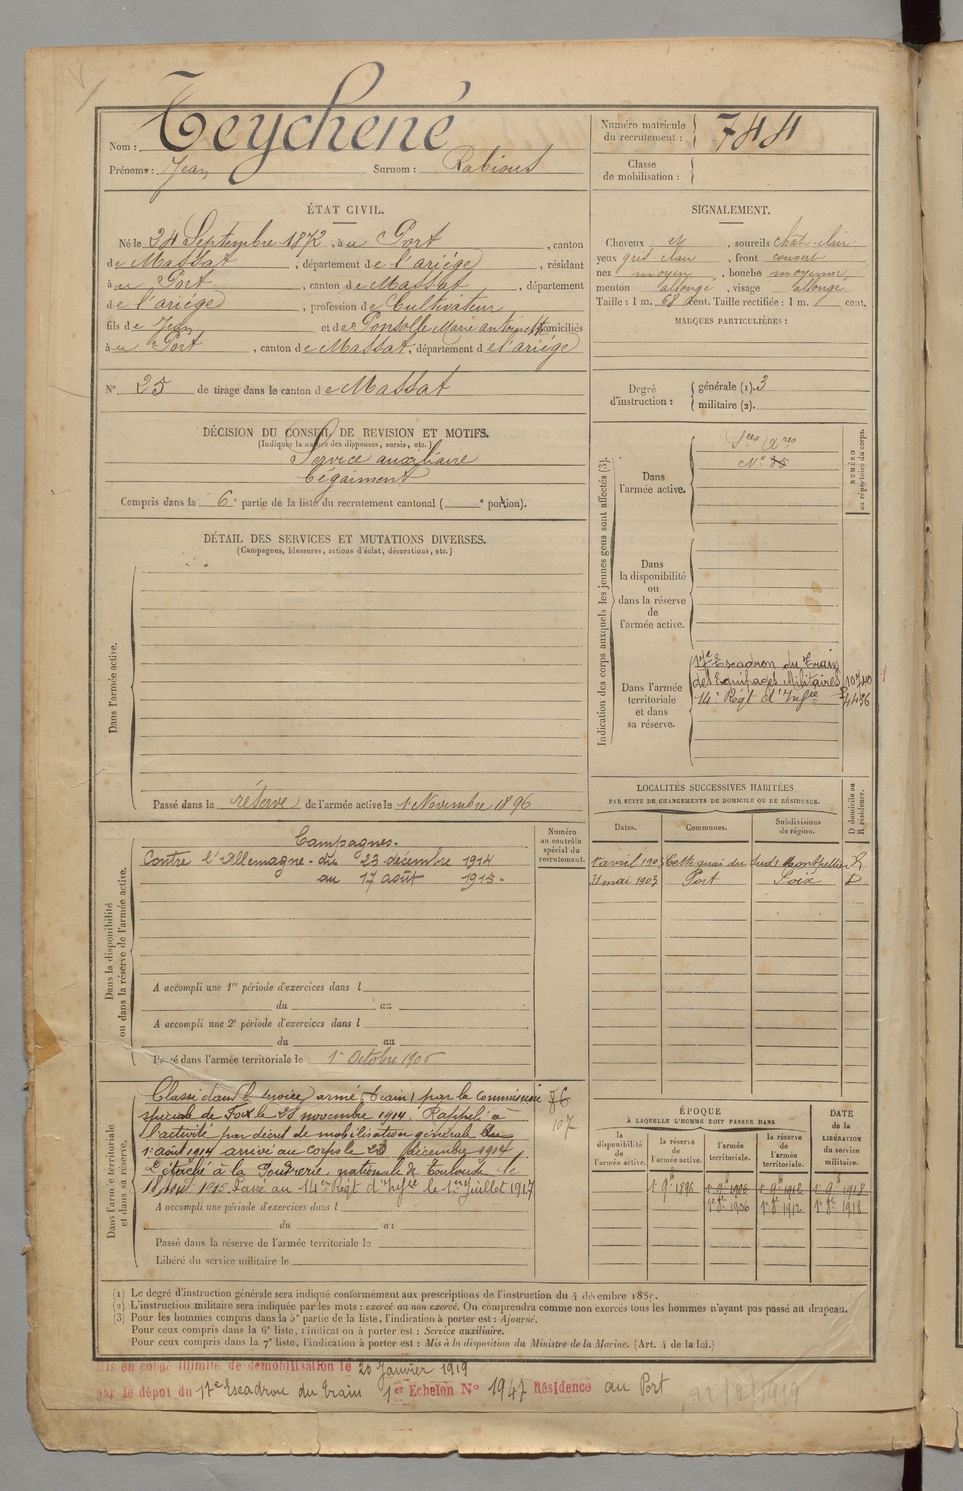 Nom : Teychené
Prénoms : Jean Surnom : Rabious
Numéro matricule du recrutement : 744
Classe de mobilisation :
ÉTAT CIVIL.
Né le 24 Septembre 1872, à au Port, canton
de Massat, département de l'ariége, résidant
à au Port, canton de Massat, département
de l'ariége, profession de Cultivateur
fils de Jean et de Ponsolle Marie antoinette domiciliés
à au Port, canton de Massat, département de l'ariége
SIGNALEMENT.
Cheveux et, sourcils chât-clair
yeux gris clair, front couvert
nez moyen, bouche moyenne
menton allongé, visage allongé
Taille : 1 m. 68 cent. Taille rectifiée : 1 m. cent.
MARQUES PARTICULIÈRES :
N° 25 de tirage dans le canton de Massat
Degré d'instruction : générale (1). 3
militaire (2).
DÉCISION DU CONSEIL DE REVISION ET MOTIFS.
(Indiquer la nature des dispenses, sursis, etc.)
Service auxiliaire
bégaiment
Compris dans la 6e partie de la liste du recrutement cantonal ( e portion).
DÉTAIL DES SERVICES ET MUTATIONS DIVERSES.
(Campagnes, blessures, actions d'éclat, décorations, etc.)
Dans l'armée active.
Passé dans la réserve de l'armée active le 1 Novembre 1896
Indication des corps auxquels les jeunes gens sont affectés (3).
NUMÉRO au répertoire du corps.
Dans l'armée active.
Sces Axres
N° 85
Dans la disponibilité ou dans la réserve de l'armée active.
Dans l'armée territoriale et dans sa réserve.
17e Escadron du Train
des Equipages Militaires 10740
14e Régt d'Infie 4496
LOCALITÉS SUCCESSIVES HABITÉES
PAR SUITE DE CHANGEMENTS DE DOMICILE OU DE RÉSIDENCE.
Dates. Communes. Subdivisions de région. D domicile ou R résidence.
1er avril 1903 Cette quai du Sud Montpellier R
31 mai 1903 Port Foix D
Dans la disponibilité ou dans la réserve de l'armée active.
Numéro au contrôle spécial du recrutement.
Campagnes.
Contre l'Allemagne du 23 décembre 1914
au 17 août 1915.
A accompli une 1re période d'exercices dans l
du au
A accompli une 2e période d'exercices dans l
du au
Passé dans l'armée territoriale le 1er Octobre 1906
Dans l'armée territoriale et dans sa réserve.
Classé dans le service armé (train) par la commission
spéciale de Foix le 28 novembre 1914. Rappelé à
l'activité par décret de mobilisation générale du
1er août 1914 arrivé au corps le 23 décembre 1914.
Détaché à la Poudrerie nationale de Toulouse le
18 août 1915. Passé au 14e Régt d'Infie le 1er Juillet 1917
107
A accompli une période d'exercices dans l
du au
Passé dans la réserve de l'armée territoriale le
Libéré du service militaire le
ÉPOQUE
À LAQUELLE L'HOMME DOIT PASSER DANS
la disponibilité de l'armée active. la réserve de l'armée active. l'armée territoriale. la réserve de l'armée territoriale.
DATE de la LIBÉRATION du service militaire.
1er 9bre 1896 1er 9bre 1906 1er 9bre 1912 1er 9bre 1918
1er 8bre 1906 1er 8bre 1912 1er 8bre 1918
(1) Le degré d'instruction générale sera indiqué conformément aux prescriptions de l'instruction du 4 décembre 1889.
(2) L'instruction militaire sera indiquée par les mots : exercé ou non exercé. On comprendra comme non exercés tous les hommes n'ayant pas passé au drapeau.
(3) Pour les hommes compris dans la 5e partie de la liste, l'indication à porter est : Ajourné.
Pour ceux compris dans la 6e liste, l'indication à porter est : Service auxiliaire.
Pour ceux compris dans la 7e liste, l'indication à porter est : Mis à la disposition du Ministre de la Marine. (Art. 4 de la loi.)
Mis en congé illimité de démobilisation le 20 Janvier 1919
par le dépôt du 17e Escadron du Train 1er Echelon N° 1947 Résidence au Port